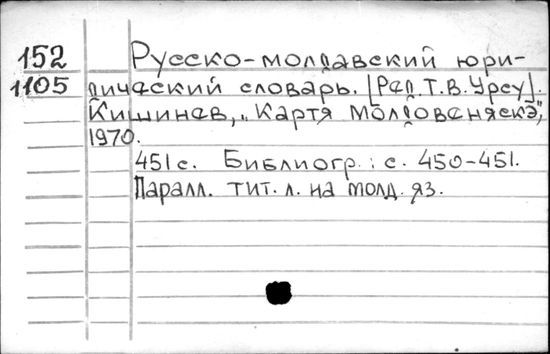 152 Русско-молдавский юри-
1105 дический словарь. [Ред. Т.В. Урсу].
Кишинев, „Картя Молдовеняскэ",
1970.
451 с. Библиогр.: с. 450-451.
Паралл. тит. л. на молд. яз.